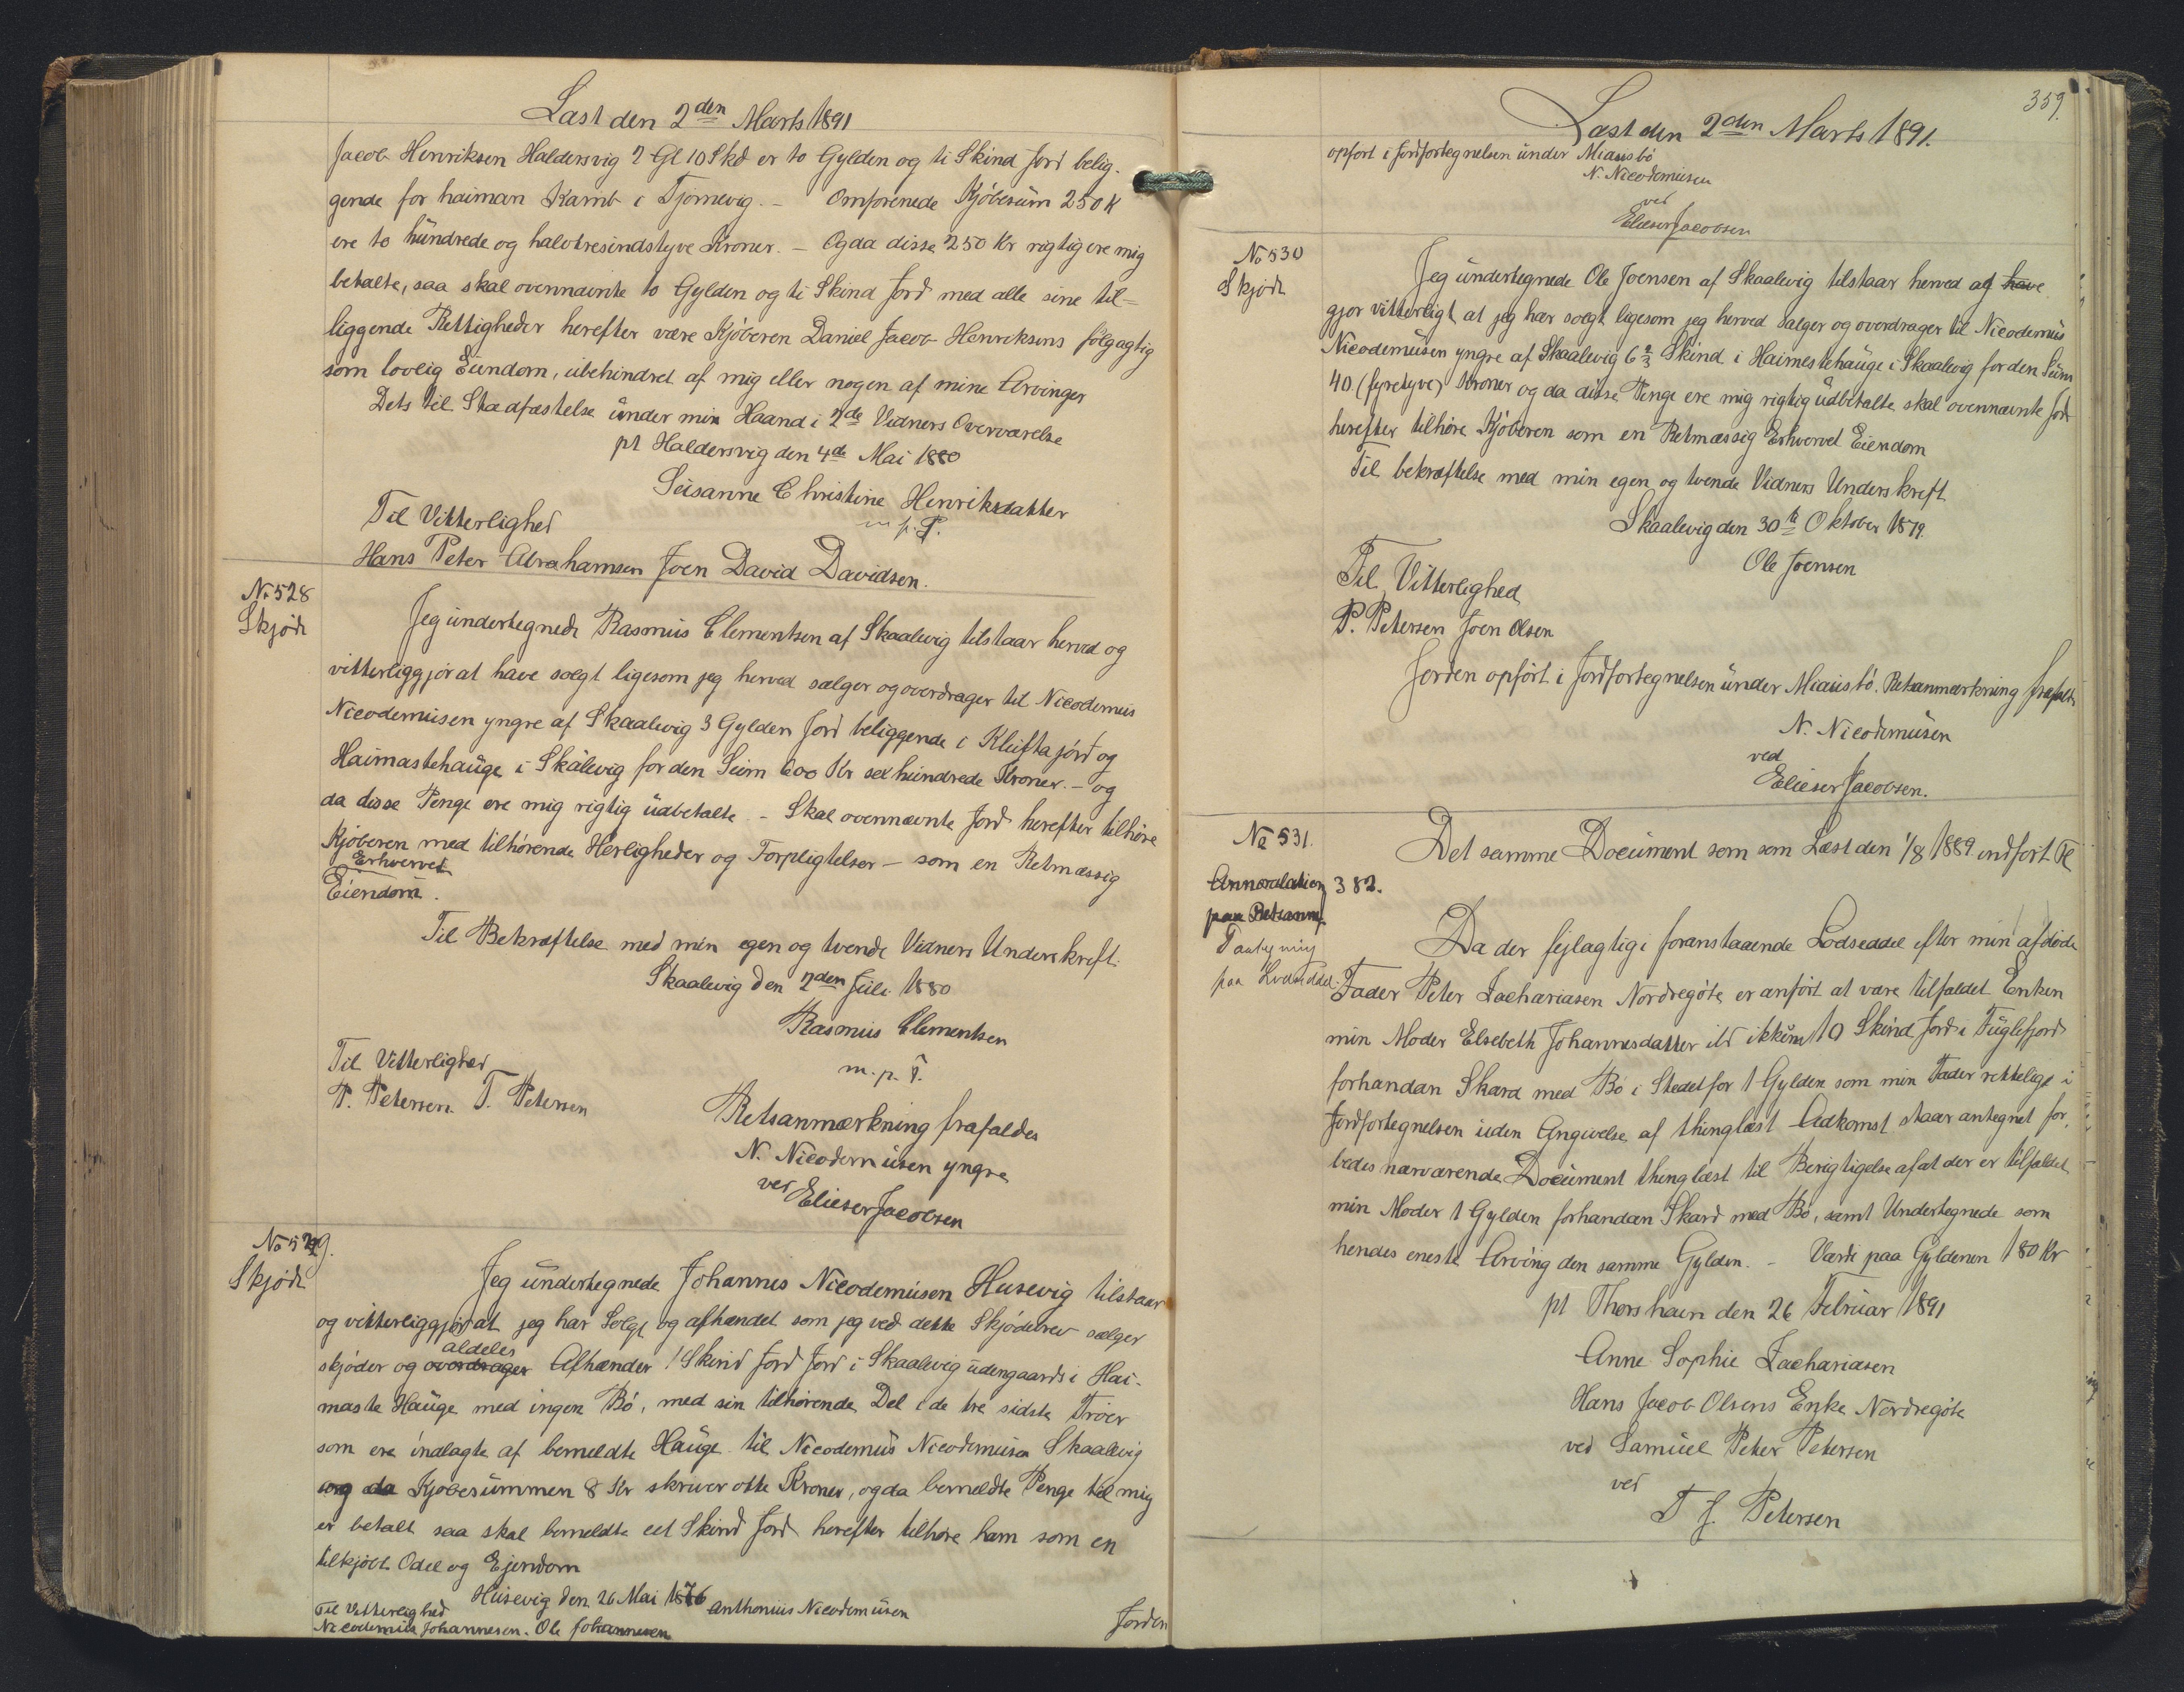 Læst den 2den Marts 1891
Jacob Henriksen Haldersvig 2 Gl 10 Skd er to Gylden og ti Skind Jord belig-
gende for haiman Kamb i Tjørnevig. - Omforenede Kjöbesum 250 K
ere to hundrede og halvtresindstyve Kroner. - Og da disse 250 Kr rigtig ere mig
betalte, saa skal ovennævnte to Gylden og ti Skind Jord med alle sine til-
liggende Rettigheder herefter være Kjöberen Daniel Jacob Henriksens følgagtig
som lovlig Eiendom, ubehindret af mig eller nogen af mine Arvinger
Dets til Stadfæstelse under min Haand i 2de Vidners Overværelse
pt Haldersvig den 4de Mai 1880
Susanne Christine Henriksdatter
m. p. P.
Til Vitterlighed
Hans Peter Abrahamsen Joen David Davidsen.
No 528
Skjöde
Jeg undertegnede Rasmus Clementsen af Skaalevig tilstaar herved og
vitterliggjör at have solgt ligesom jeg herved sælger og overdrager til Nicodemus
Nicodemusen yngre af Skaalevig 3 Gylden Jord beliggende i Kluftajörd og
Haimastehauge i Skålevig for den Sum 600 Kr sex hundrede Kroner. - og
da disse Penge ere mig rigtig udbetalte - Skal ovennævnte Jord herefter tilhöre
Kjöberen med tilhörende Herligheder og Forpligtelser - som en Retmæssig
Erhvervet
Eiendom.
Til Bekræftelse med min egen og tvende Vidners Underskreft.
Skaalevig den 2den Juli 1880
Rasmus Clementsen
m. p. P.
Til Vitterlighed
P. Petersen T. Petersen
Retsanmærkning frafaldes
N. Nicodemusen yngre
ved Elieser Jacobsen
No 529.
Skjöde
Jeg undertegnede Johannes Nicodemusen Husevig tilstaar
og vitterliggjör at jeg har Solgt og afhændet som jeg ved dette Skjödebrev sælger
aldeles
skjöder og overdrager Afhænder 1 Skind Jord Jord i Skaalevig udengaards i Hai-
maste Hauge med ingen Bö, med sin tilhörende Del i de tre sidste Tröer
som ere indlagte af bemeldte Hauge til Nicodemus Nicodemusen Skaalevig
og da Kjöbesummen 8 Kr skriver otte Kroner, og da bemeldte Penge til mig
er betalt saa skal bemeldte eet Skind Jord herefter tilhöre ham som en
tilkjöbt Odel og Ejendom
Husevig den 26 Mai 1876
Anthonius Nicodemusen
Til Vitterlighed
Nicodemus Johannesen. Ole Johannesen
Jorden
359.
Læst den 2den Marts 1891.
opfört i Jordfortegnelsen under Miausbö
N. Nicodemusen
ved
Elieser Jacobsen
No 530
Skjöde
Jeg undertegnede Ole Joensen af Skaalevig tilstaar herved og have
gjör vitterligt at jeg har solgt ligesom jeg herved sælger og overdrager til Nicodemus
Nicodemusen yngre af Skaalevig 6 2/3 Skind i Haimestehauge i Skaalevig for den Sum
40 (fyretyve) Kroner og da disse Penge ere mig rigtig udbetalte skal ovennævnte Jord
herefter tilhöre Kjöberen som en Retmæssig Erhvervet Eiendom
Til bekræftelse med min egen og tvende Vidners Underskreft
Skaalevig den 30te Oktober 1879.
Ole Joensen
Til Vitterlighed
P. Petersen Joen Olsen
Jorden opfört i Jordfortegnelsen under Miausbö. Retsanmærkning frafaldes
N. Nicodemusen
ved
Elieser Jacobsen.
No 531.
Annotation
paa Retsanm.
Paategning
paa Lodseddel.
Det samme Document som som Læst den 1/8 1889 indfört Fol
382.
Da der fejlagtig i foranstaaende Lodseddel efter min afdöde
Fader Peter Zachariasen Nordregöte er anfört at være tilfaldet Enken
min Moder Elsebeth Johannesdatter ild ikkun 10 Skind Jord i Fuglefjord
forhandan Skard med Bö i Stedet for 1 Gylden som min Fader rettelige i
Jordfortegnelsen uden Angivelse af thinglæst Adkomst staar antegnet for,
bedes nærværende Document thinglæst til Berigtigelse af at der er tilfaldet
min Moder 1 Gylden forhandan Skard med Bö, samt Undertegnede som
hendes eneste Arving den samme Gylden. - Værdi paa Gyldenen 180 Kr
pt Thorshavn den 26 Februar 1891
Anne Sophie Zachariasen
Hans Jacob Olsens Enke Nordregöte
ved Samuel Peter Petersen
ved
T J. Petersen